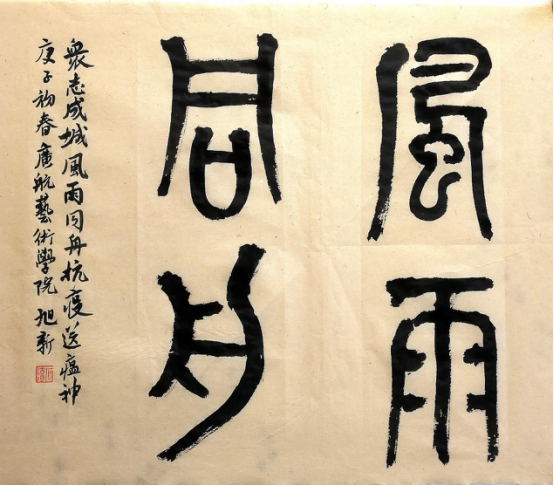 風雨
同舟
衆志成城風雨同舟抗疫送瘟神
庚子初春廣航藝術學院旭新